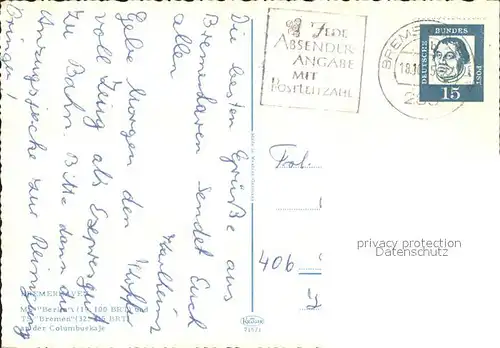 Die besten Grüße aus
Bremerhaven sendet Euch
allen
Karlheinz
Gebe Morgen den Koffer
voll Zeug als Expressgut
zu Bahn. Bitte dann die
Anzugsjacke zur Reinigung
bringen
JEDE
ABSENDER
ANGABE
MIT
POSTLEITZAHL
BREME
18.1
285
DEUTSCHE BUNDES POST
15
Fol.
406
privacy protection
Datenschutz
MS "Berlin" (18 600 BRT) und
TS "Bremen" (32 336 BRT)
an der Columbuskaje